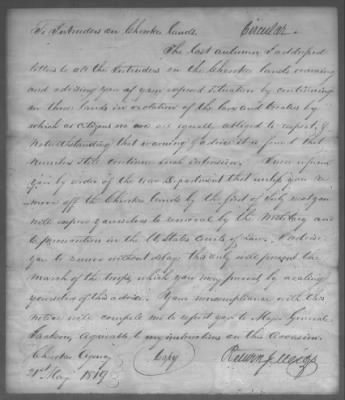 To Intruders on Cherokee lands. Circular.
The last autumn I addressed
letters to all the Intruders on the Cherokee lands warning
and advising you of your exposed situation by continuing
on these lands in violation of the laws and treaties by
which as citizens we are equally obliged to respect, &
Notwithstanding that warning & advice it is found that
Numbers still continue such intrusion. I now inform
you by order of the War Department that unless you re
move off the Cherokee lands by the first of July next you
will expose yourselves to removal by the Military and
to prosecution in the U States Courts of Law. I advise
you to remove without delay this only will prevent the
March of the troops, which you may prevent by availing
yourselves of this advice. Your noncompliance with this
notice will compel me to report you to Major General
Jackson, agreeable to my instructions on this occasion.
Cherokee Agency Copy Return J. Meigs
21st May 1819